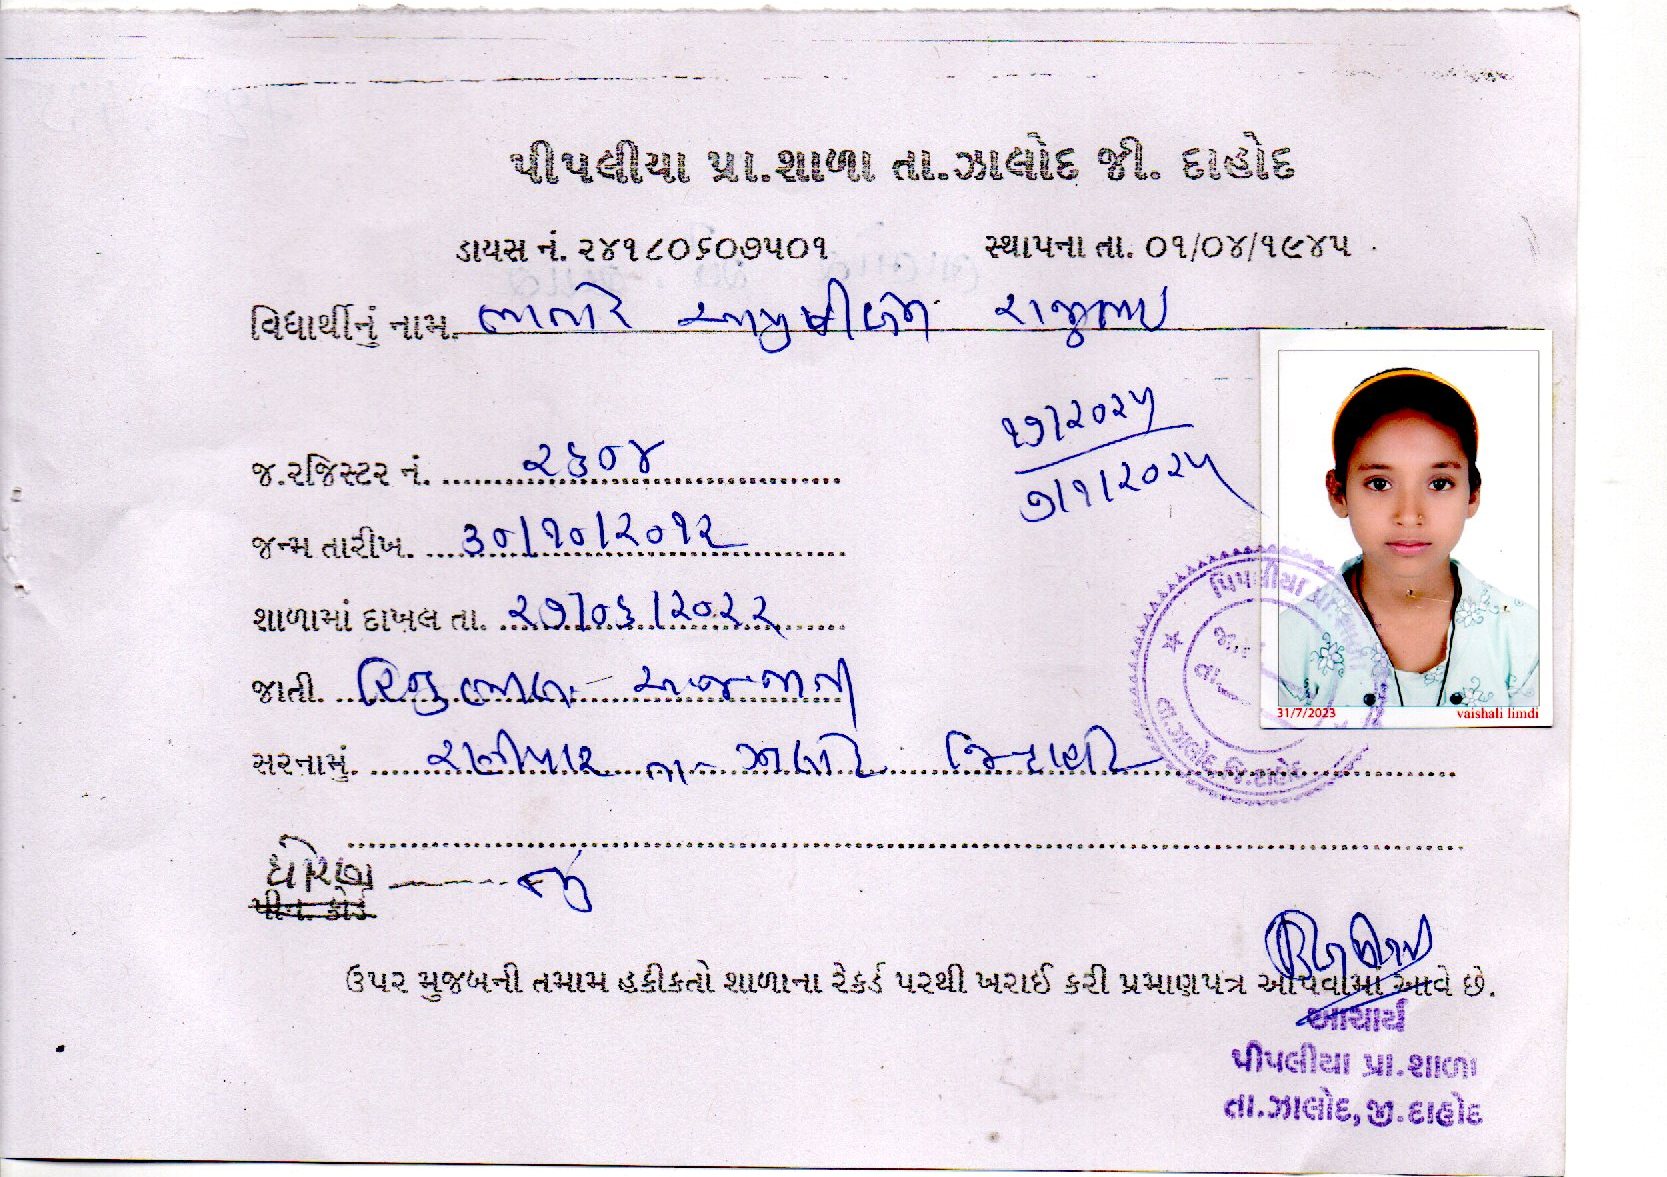 પીપલીયા પ્રા.શાળા તા.ઝાલોદ જી. દાહોદ
ડાયસ નં. ૨૪૧૮૦૬૦૭૫૦૧ સ્થાપના તા. ૦૧/૦૪/૧૯૪૫
વિધાર્થીનું નામ. રાજુભાઇ
૧૭/૨૦૨૫
૭/૧/૨૦૨૫
જ.રજિસ્ટર નં. ૨૬૦૪
જન્મ તારીખ. ૩૦/૧૦/૨૦૧૨
શાળામાં દાખલ તા. ૨૭/૦૬/૨૦૨૨
જાતી. હિન્દુ
સરનામું. રણીયાર તા- ઝાલોદ જિ-દાહોદ
ધોરણ
પીન. કોર્ડ
31/7/2023 vaishali limdi
પિપલીયા
તા.ઝાલોદ જિ.દાહોદ
ઉપર મુજબની તમામ હકીકતો શાળાના રેકર્ડ પરથી ખરાઈ કરી પ્રમાણપત્ર આપવામાં આવે છે.
આચાર્ય
પીપલીયા પ્રા.શાળા
તા.ઝાલોદ, જી.દાહોદ